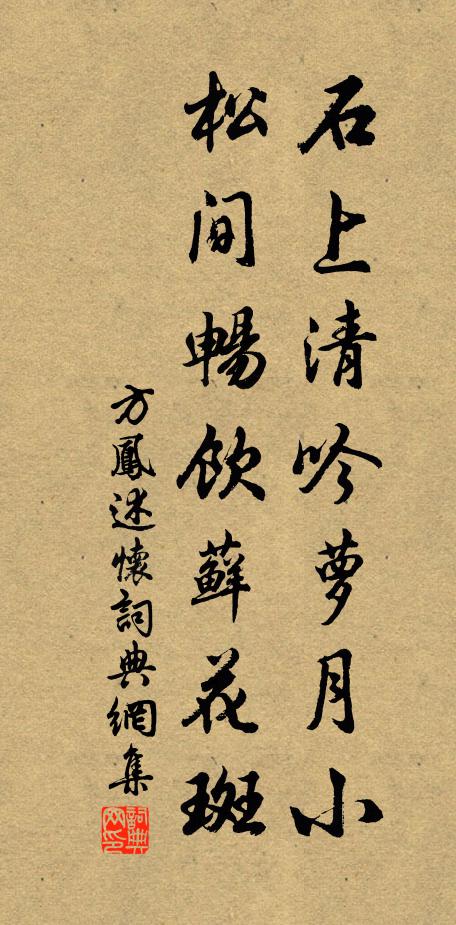 石上清吟萝月小
松間暢飲蘚花斑
方鳳述懷詞典網集
詞典網印